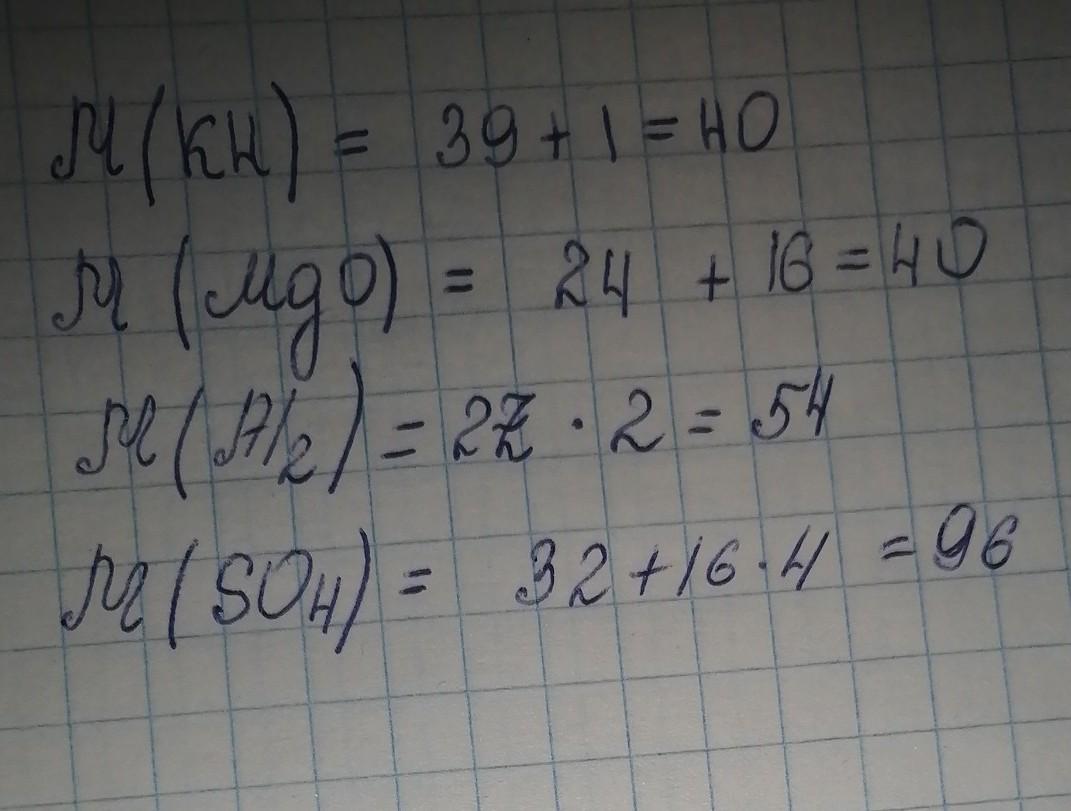 M(KH) = 39 + 1 = 40
M (MgO) = 24 + 16 = 40
M(Al₂) = 27 · 2 = 54
M(SO₄) = 32 + 16 · 4 = 96